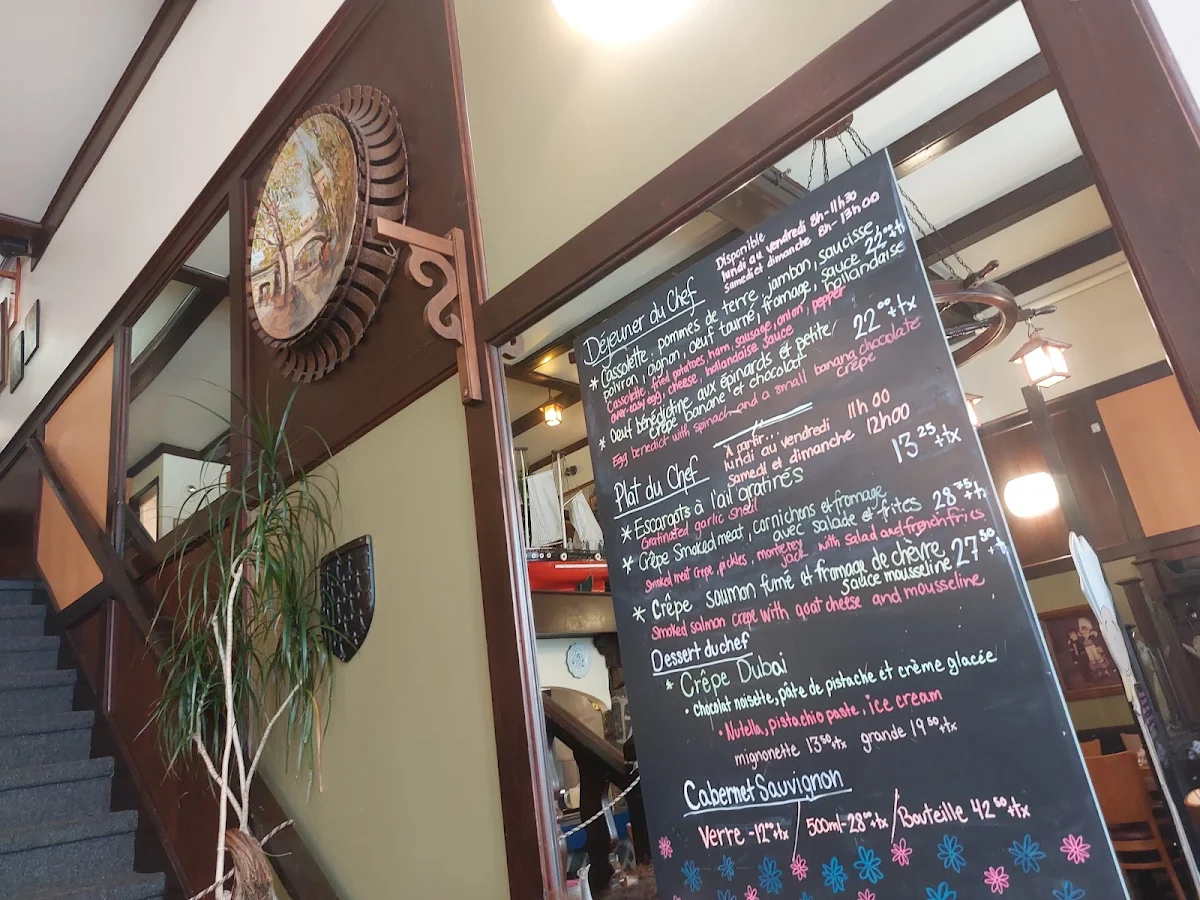 Déjeuner du Chef
Disponible
lundi au vendredi 8h-11h30
samedi et dimanche 8h-13h00
* Cassolette: pommes de terre, jambon, saucisse,
poivron, oignon, oeuf tourné, fromage, sauce hollandaise 22⁰⁰+tx
Cassolette, fried potatoes, ham, sausage, onion, pepper
over-easy egg, cheese, hollandaise sauce
* Oeuf bénédictine aux épinards et petite
crêpe banane et chocolat 22⁰⁰+tx
Egg benedict with spinach and a small banana chocolate
crêpe
Plat du Chef
À partir...
lundi au vendredi 11h00
samedi et dimanche 12h00
* Escargots à l'ail gratinés 13²⁵+tx
Gratinated garlic snail
* Crêpe Smoked meat, cornichons et fromage
avec salade et frites 28⁷⁵+tx
Smoked meat crepe, pickles, monterey
jack, with salad and french fries
* Crêpe saumon fumé et fromage de chèvre,
sauce mousseline 27⁵⁰+tx
Smoked salmon crepe with goat cheese and mousseline
Dessert du chef
* Crêpe Dubai
• chocolat noisette, pâte de pistache et crème glacée
• Nutella, pistachio paste, ice cream
mignonette 13⁵⁰+tx grande 19⁵⁰+tx
Cabernet Sauvignon
Verre -12⁰⁰+tx / 500ml-28⁰⁰+tx / Bouteille 42⁵⁰+tx